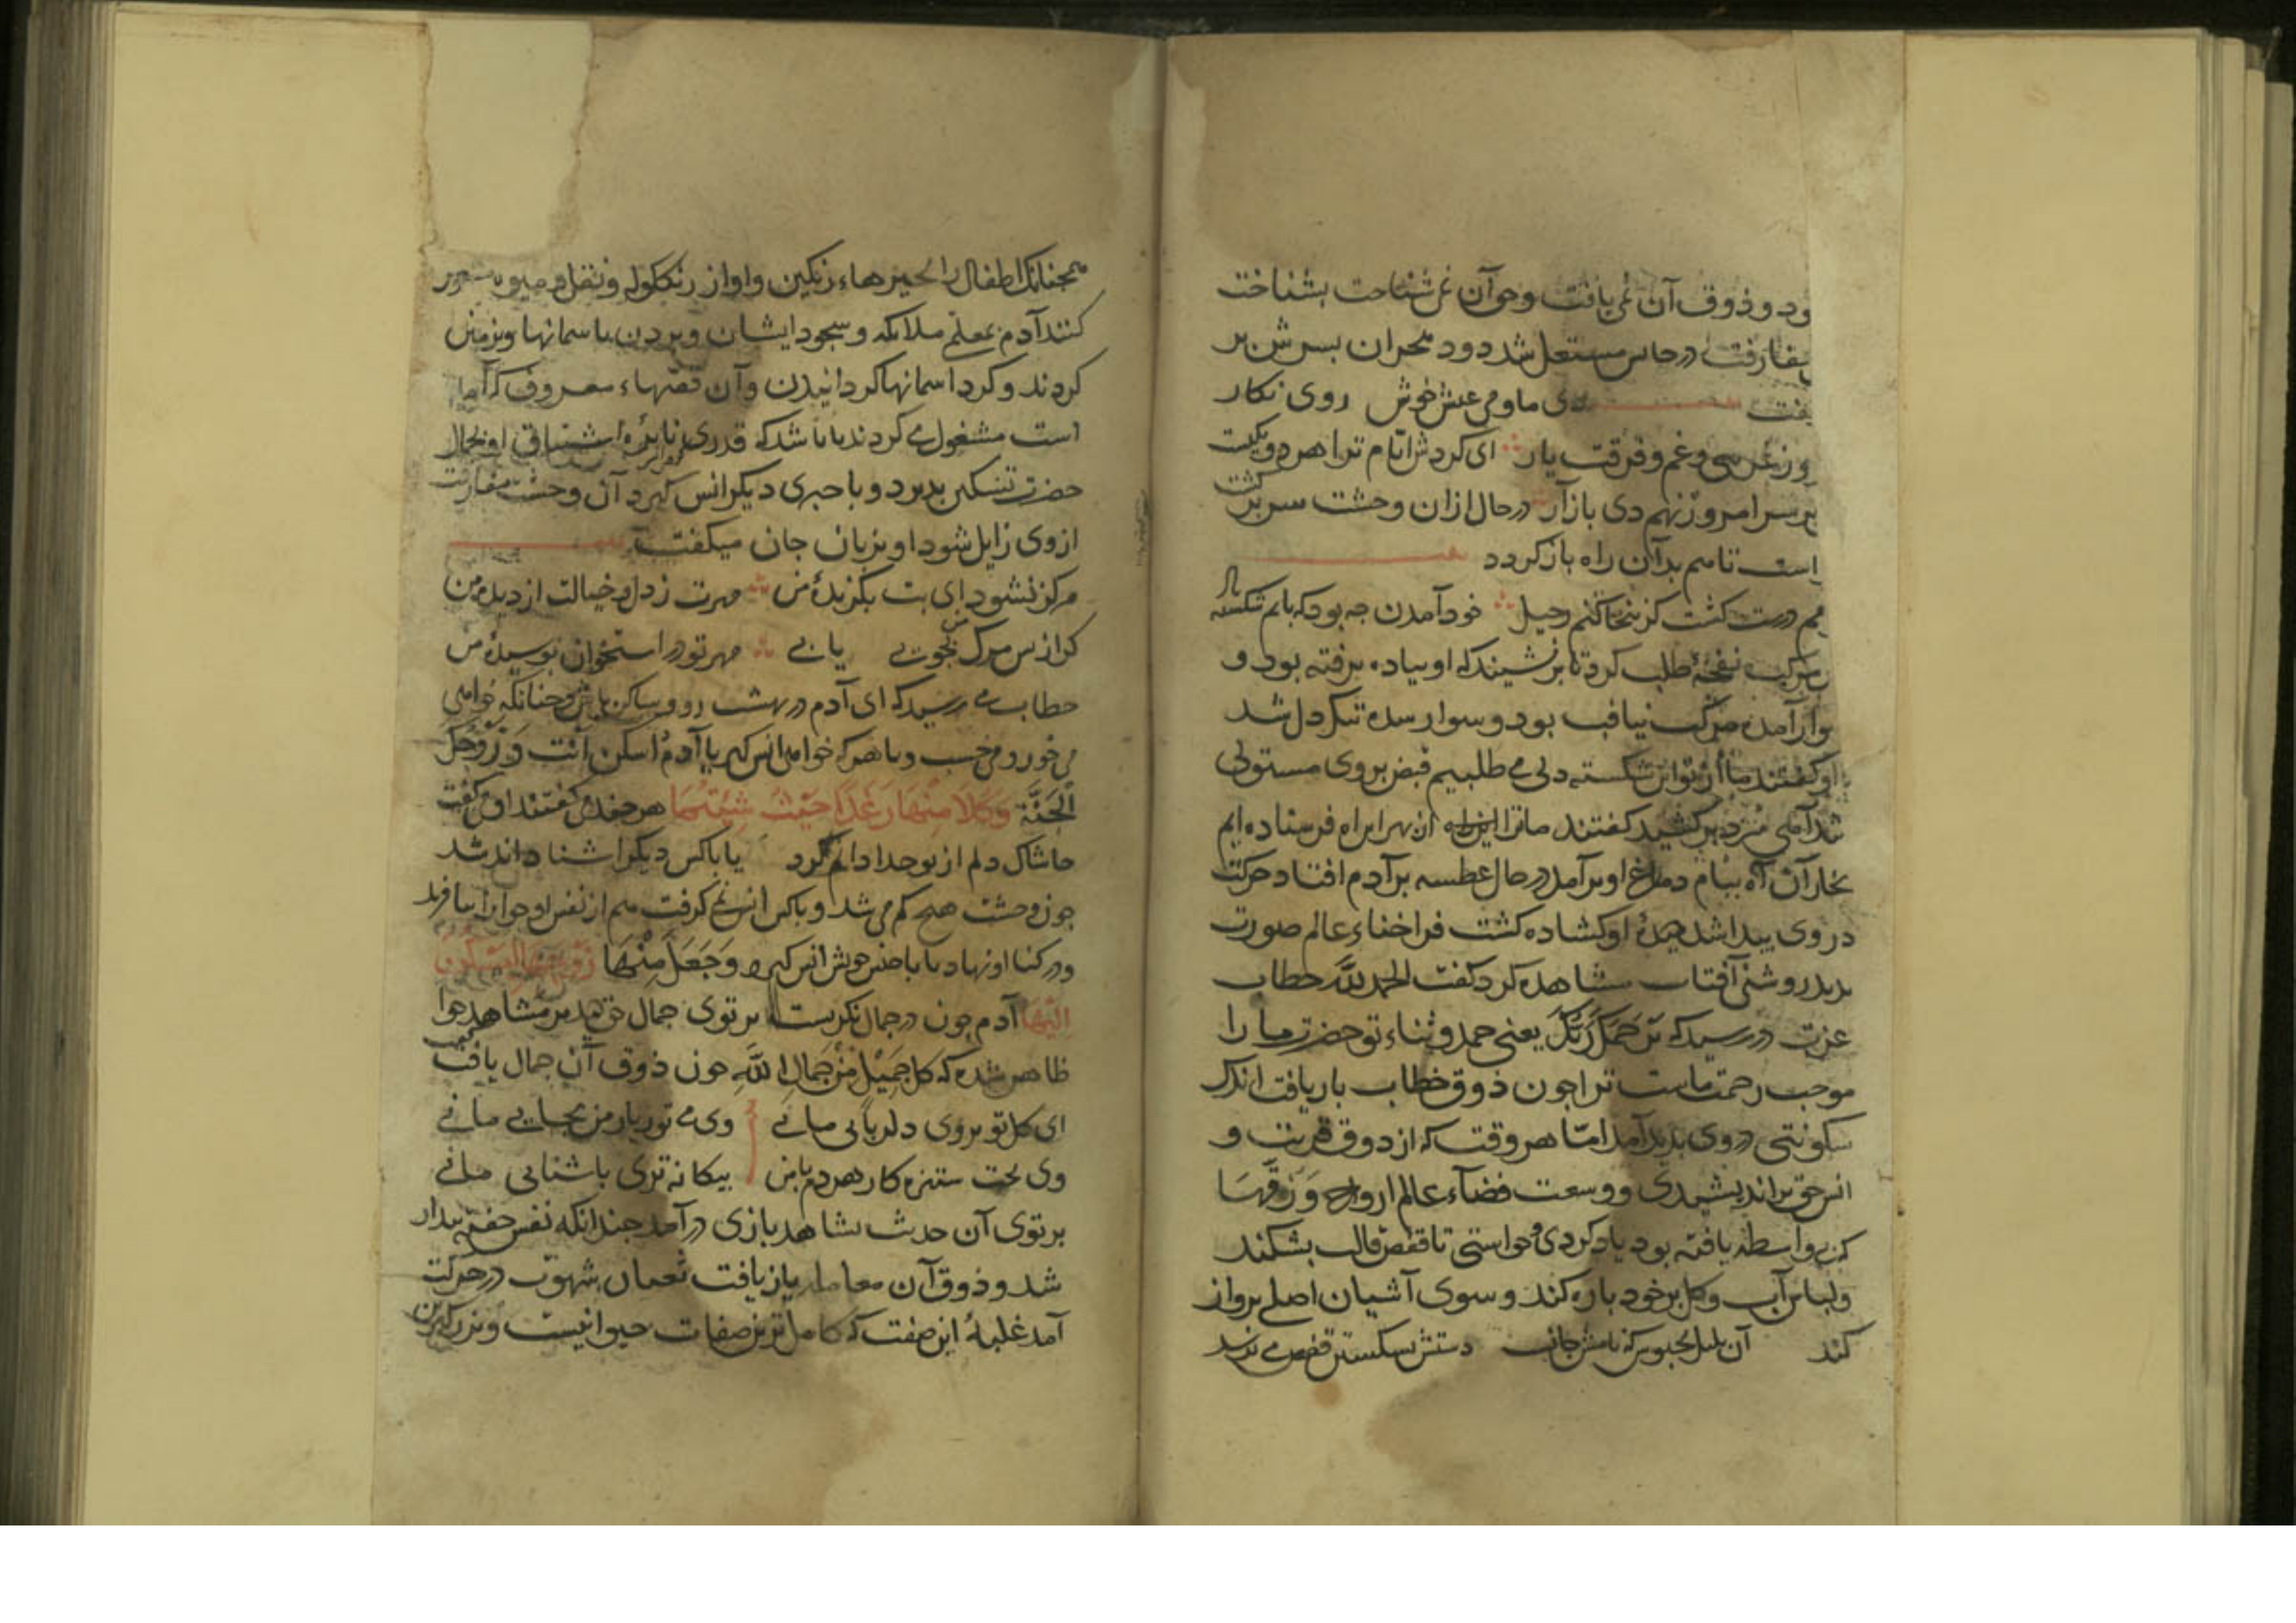 ود و ذوق آن می یافت و حق آن نمی شناخت بشناخت
مفارقت در جانش مشتعل شد دود هجران بسرش بر
دی ما و می و عیش خوش روی نکار
وز غم و فرقت یار ای کردش ایام ترا هر دو یکیست
بر سر امروز نهم دی باز آر در حال ازان وحشت سر بر کشت
است تا هم بدان راه باز کردد
هم درست کشت کزینجا کنم رحیل خود آمدن چه بود که پایم شکسته باد
مرکب نفخه طلب کرد تا بر نشیند که او پیاده نرفته بود و
سوار آمده مرکب نیافت بود و سوار سده تنکدل شد
او کفتند ما از تو این شکسته دلی می طلبیم قبض بر وی مستولی
شد آهی سرد بر کشید کفتند ما ترا از بهر این آه فرستاده ایم
بخار آن آه ببام دماغ او بر آمد در حال عطسه بر آدم افتاد حرکت
در وی پیدا شد دیده او کشاده کشت فراخناء عالم صورت
بدید روشنی آفتاب مشاهده کرد کفت الحمد لله خطاب
عزت در رسید که یَرحَمُکَ رَبُّکَ یعنی حمد و ثناء تو حضرت ما را
موجب رحمت ماست ترا چون ذوق خطاب باز یافت اندک
سکونتی در وی پدید آمد اما هر وقت که از ذوق قربت و
انس حق بر اندیشیدی و وسعت فضاء عالم ارواح و ذوقها
که بی واسطه یافته بود یاد کردی و خواستی تا قفص قالب بشکند
و لباس آب و کل بر خود باره کند و سوی آشیان اصلی برواز
کند آن بلبل محبوس که نامش جانست دستش بشکستن قفص می نرسد
همچنانک اطفال را بچیزهاء رنکین و اواز زنکوله و نقل و میوه مشغول
کنند آدم بمعلم ملایکه و سجود ایشان و بردن باسمانها و بزمین
کردند و کرد اسمانها کردانیدن و آن قصهاء معروف که آمده
است مشغول می کردند تا باشد که قدری نایره اشتیاق او بجمال
حضرت تسکین بدیرد و با چیزی دیکر انس کیرد آن وحشت مفارقت
از وی زایل شود او بزبان جان میکفت
هرکز نشود ای بت بکزیدهٔ من مهرت ز دل و خیالت از دیده من
کر از بس مرک من بجویی یابی مهر تو در استخوان بوسیدهٔ من
خطاب می رسید که ای آدم در بهشت رو و ساکن باش و چنانکه خواهی
می خور و می خسب و با هر که خواهی انس کیر یا آدمُ اسکن اَنتَ وَ زَوجُکَ
الجَنَّة وَکُلَا مِنهَا رَغَداً حَیثُ شِئتُمَا هر چند می کفتند او می کفت
حاشاک دلم از تو جدا داند کرد یا با کس دیکر اشنا داند شد
چون وحشت هیچ کم می شد و با کس انس نمی کرفت هم از نفس او حوا را بیافرید
و در کنار او نهاد تا با جنس خویش انس کیرد وَجَعَلَ مِنهَا زَوجَهَا لِیَسکُنَ
اِلَیهَا آدم چون در جمال نکریست برتوی جمال حق دید بر مشاهده حوا
ظاهر شده که کل جَمِیلٍ مِن جَمَالِ اللّٰهِ چون ذوق آن جمال یافت کفت
ای کل تو بروی دلربایی مانی وی می تو بیار من بجایی مانی
وی بخت ستیزه کار هر دم با من بیکانه تری باشنایی مانی
برتوی آن حدیث بشاهد بازی در آمد چندانکه نفس خفته بیدار
شد و ذوق آن معامله بازیافت ثعبان شهوت در حرکت
آمد غلبهٔ این صفت که کامل ترین صفات حیوانیست و بزرکترین